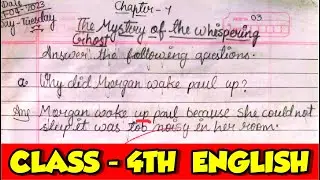 Chapter-1
2023
Day-Tuesday
03
The Mystery of the whispering
Ghost
Answer the following questions.
a. Why did Morgan wake paul up?
Ans Morgan wake up paul because she could not
sleep it was too noisy in her room.
CLASS - 4TH ENGLISH